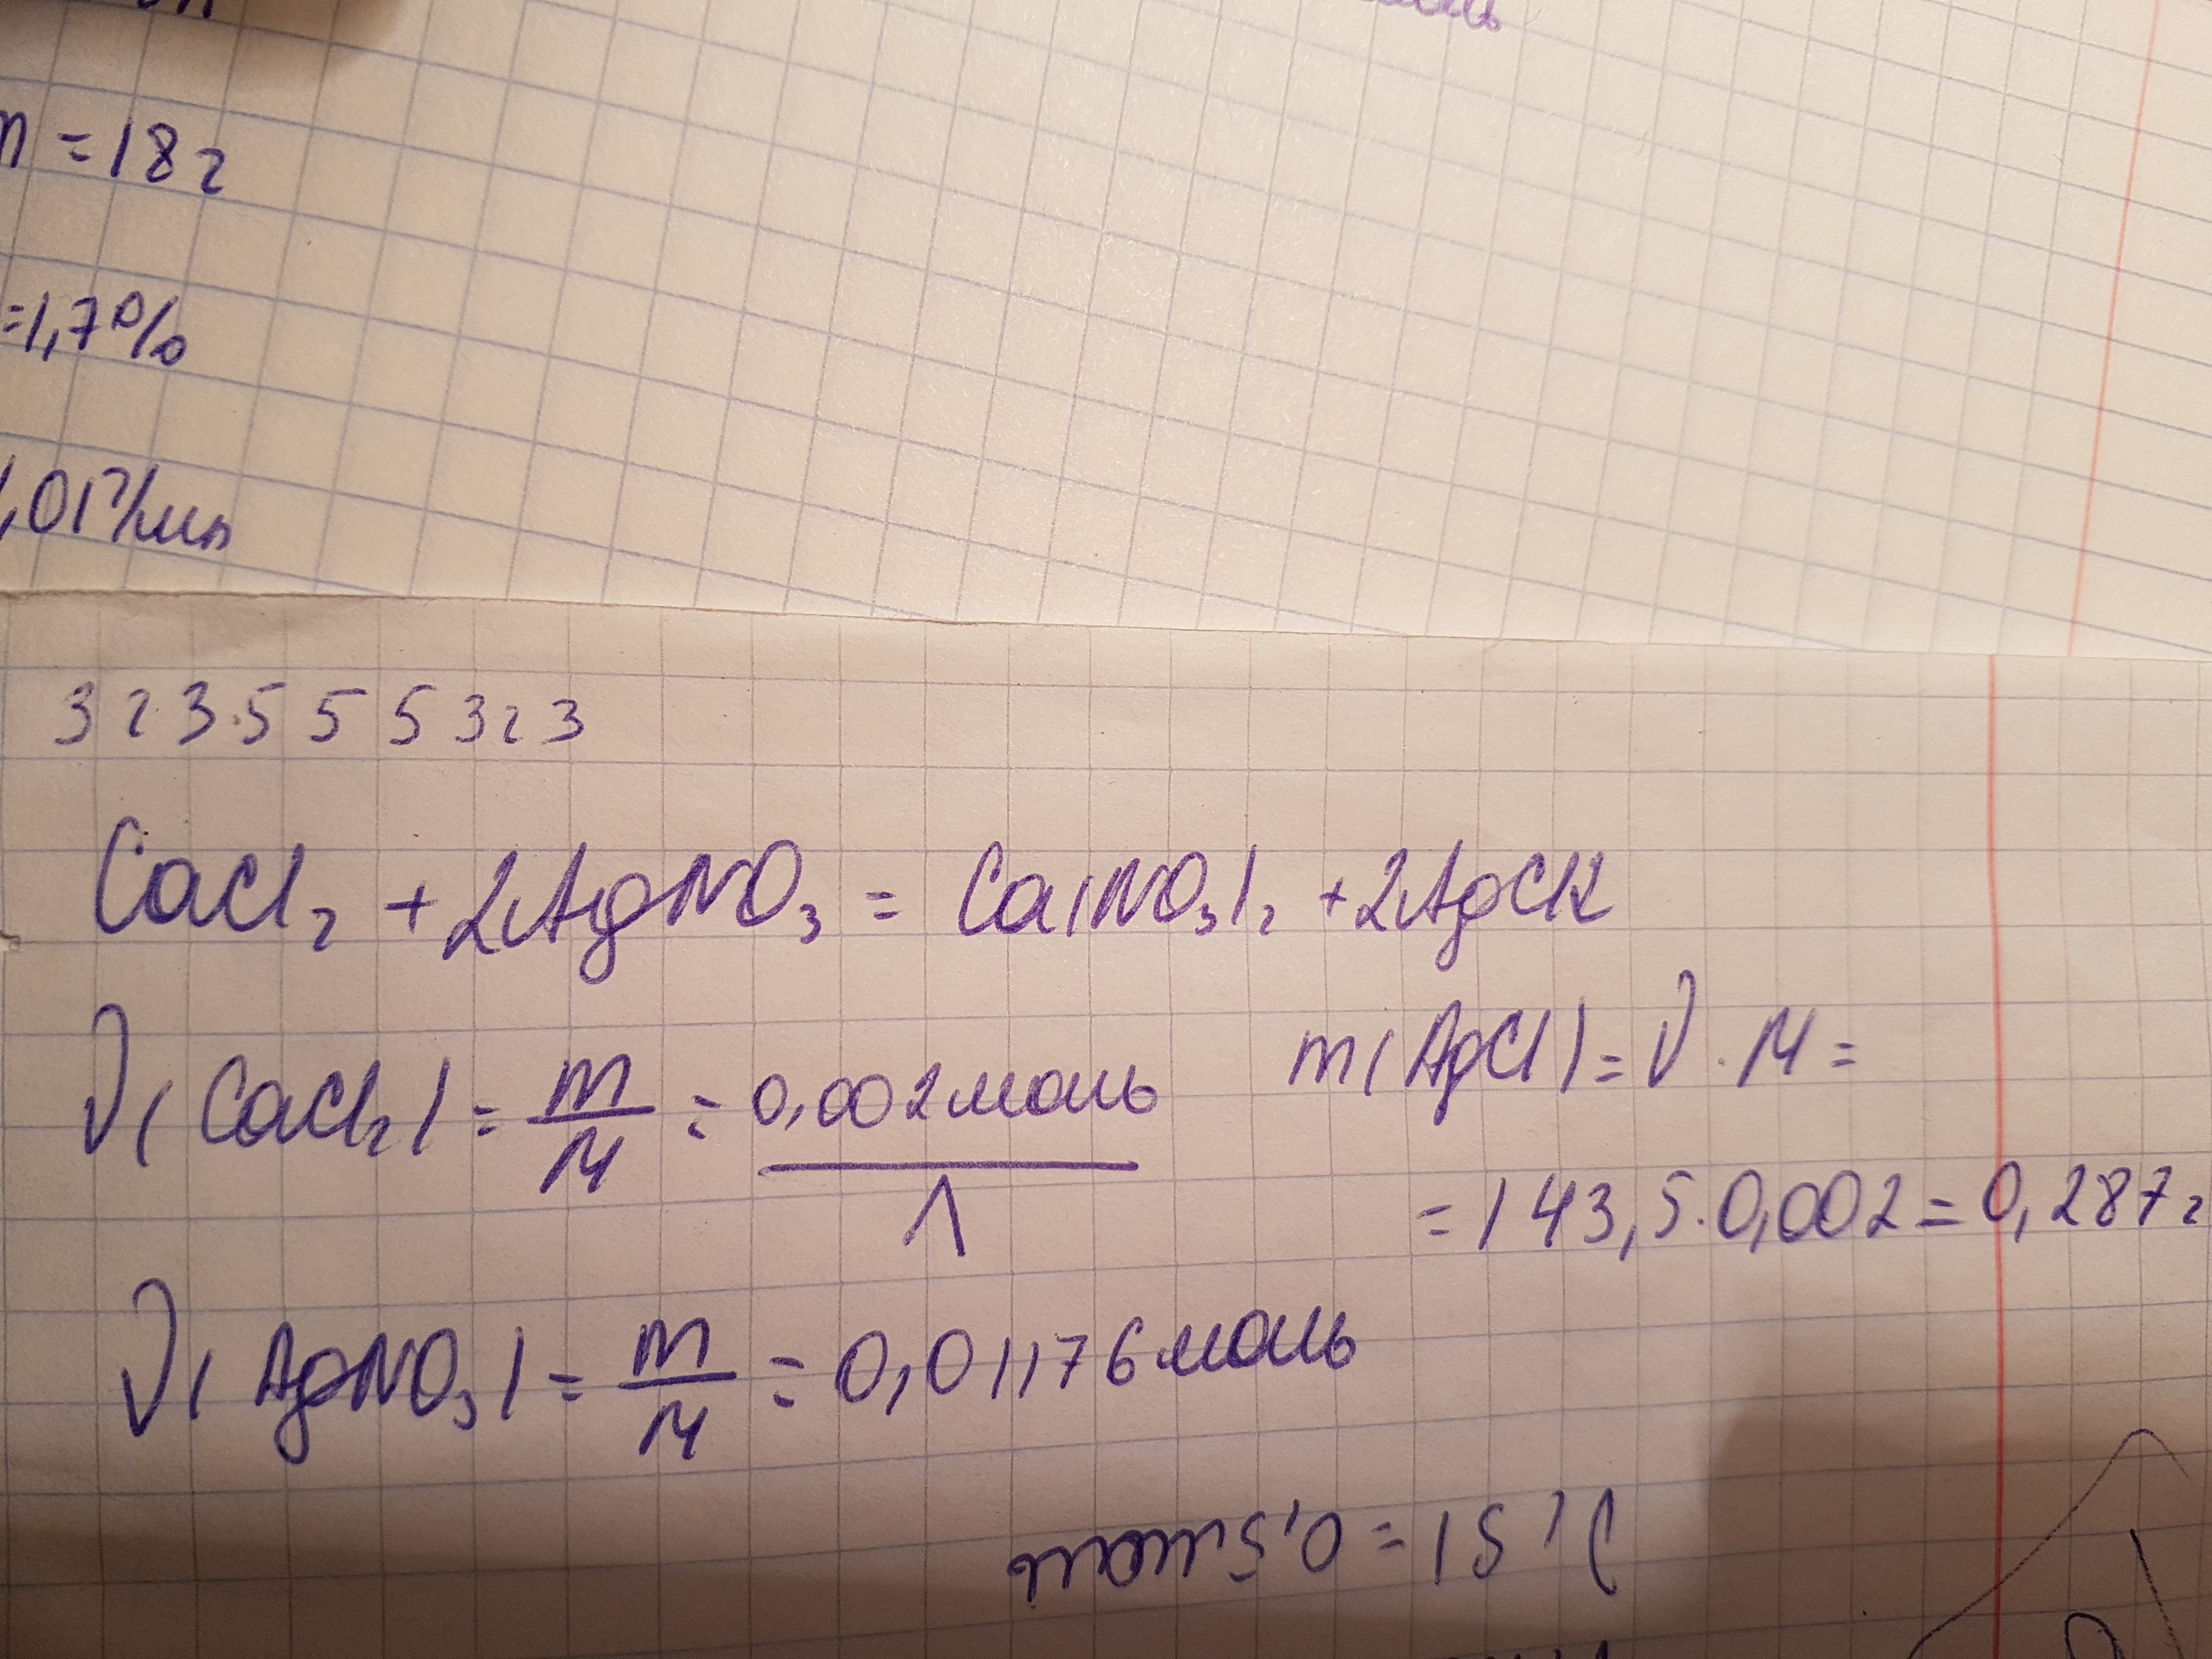 m = 18 г
= 1,7 %
,01 г/мл
3 2 3 5 5 5 3 2 3
CaCl₂ + 2AgNO₃ = Ca(NO₃)₂ + 2AgCl↓
ν(CaCl₂) = m/M = 0,002 моль
m(AgCl) = ν · M =
Λ
= 143,5 · 0,002 = 0,287 г
ν(AgNO₃) = m/M = 0,01176 моль
ν(S) = 0,5 моль